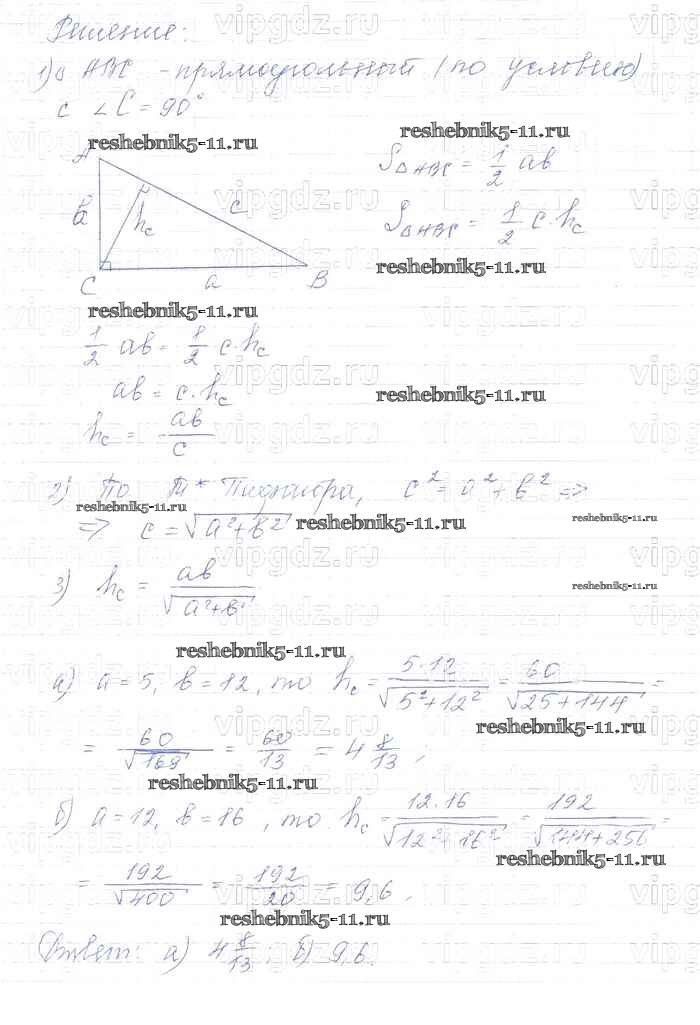 Решение:
1) △ ABC - прямоугольный (по условию)
с ∠C = 90°
reshebnik5-11.ru
reshebnik5-11.ru
A
S△ABC = 1/2 ab
в
hc
c
S△ABC = 1/2 c·hc
C
a
B
reshebnik5-11.ru
reshebnik5-11.ru
1/2 ab = 1/2 c·hc
ab = c·hc
reshebnik5-11.ru
hc = ab/c
2) По т* Пифагора, c² = a² + b² =>
reshebnik5-11.ru
=> c = √(a²+b²)
reshebnik5-11.ru
reshebnik5-11.ru
3) hc = ab/√(a²+b²)
reshebnik5-11.ru
reshebnik5-11.ru
а) a = 5, b = 12, то hc = 5·12/√(5²+12²) = 60/√(25+144) =
reshebnik5-11.ru
= 60/√169 = 60/13 = 4 8/13;
reshebnik5-11.ru
б) a = 12, b = 16, то hc = 12·16/√(12²+16²) = 192/√(144+256) =
reshebnik5-11.ru
= 192/√400 = 192/20 = 9,6.
reshebnik5-11.ru
Ответ: а) 4 8/13; б) 9,6.
vipgdz.ru